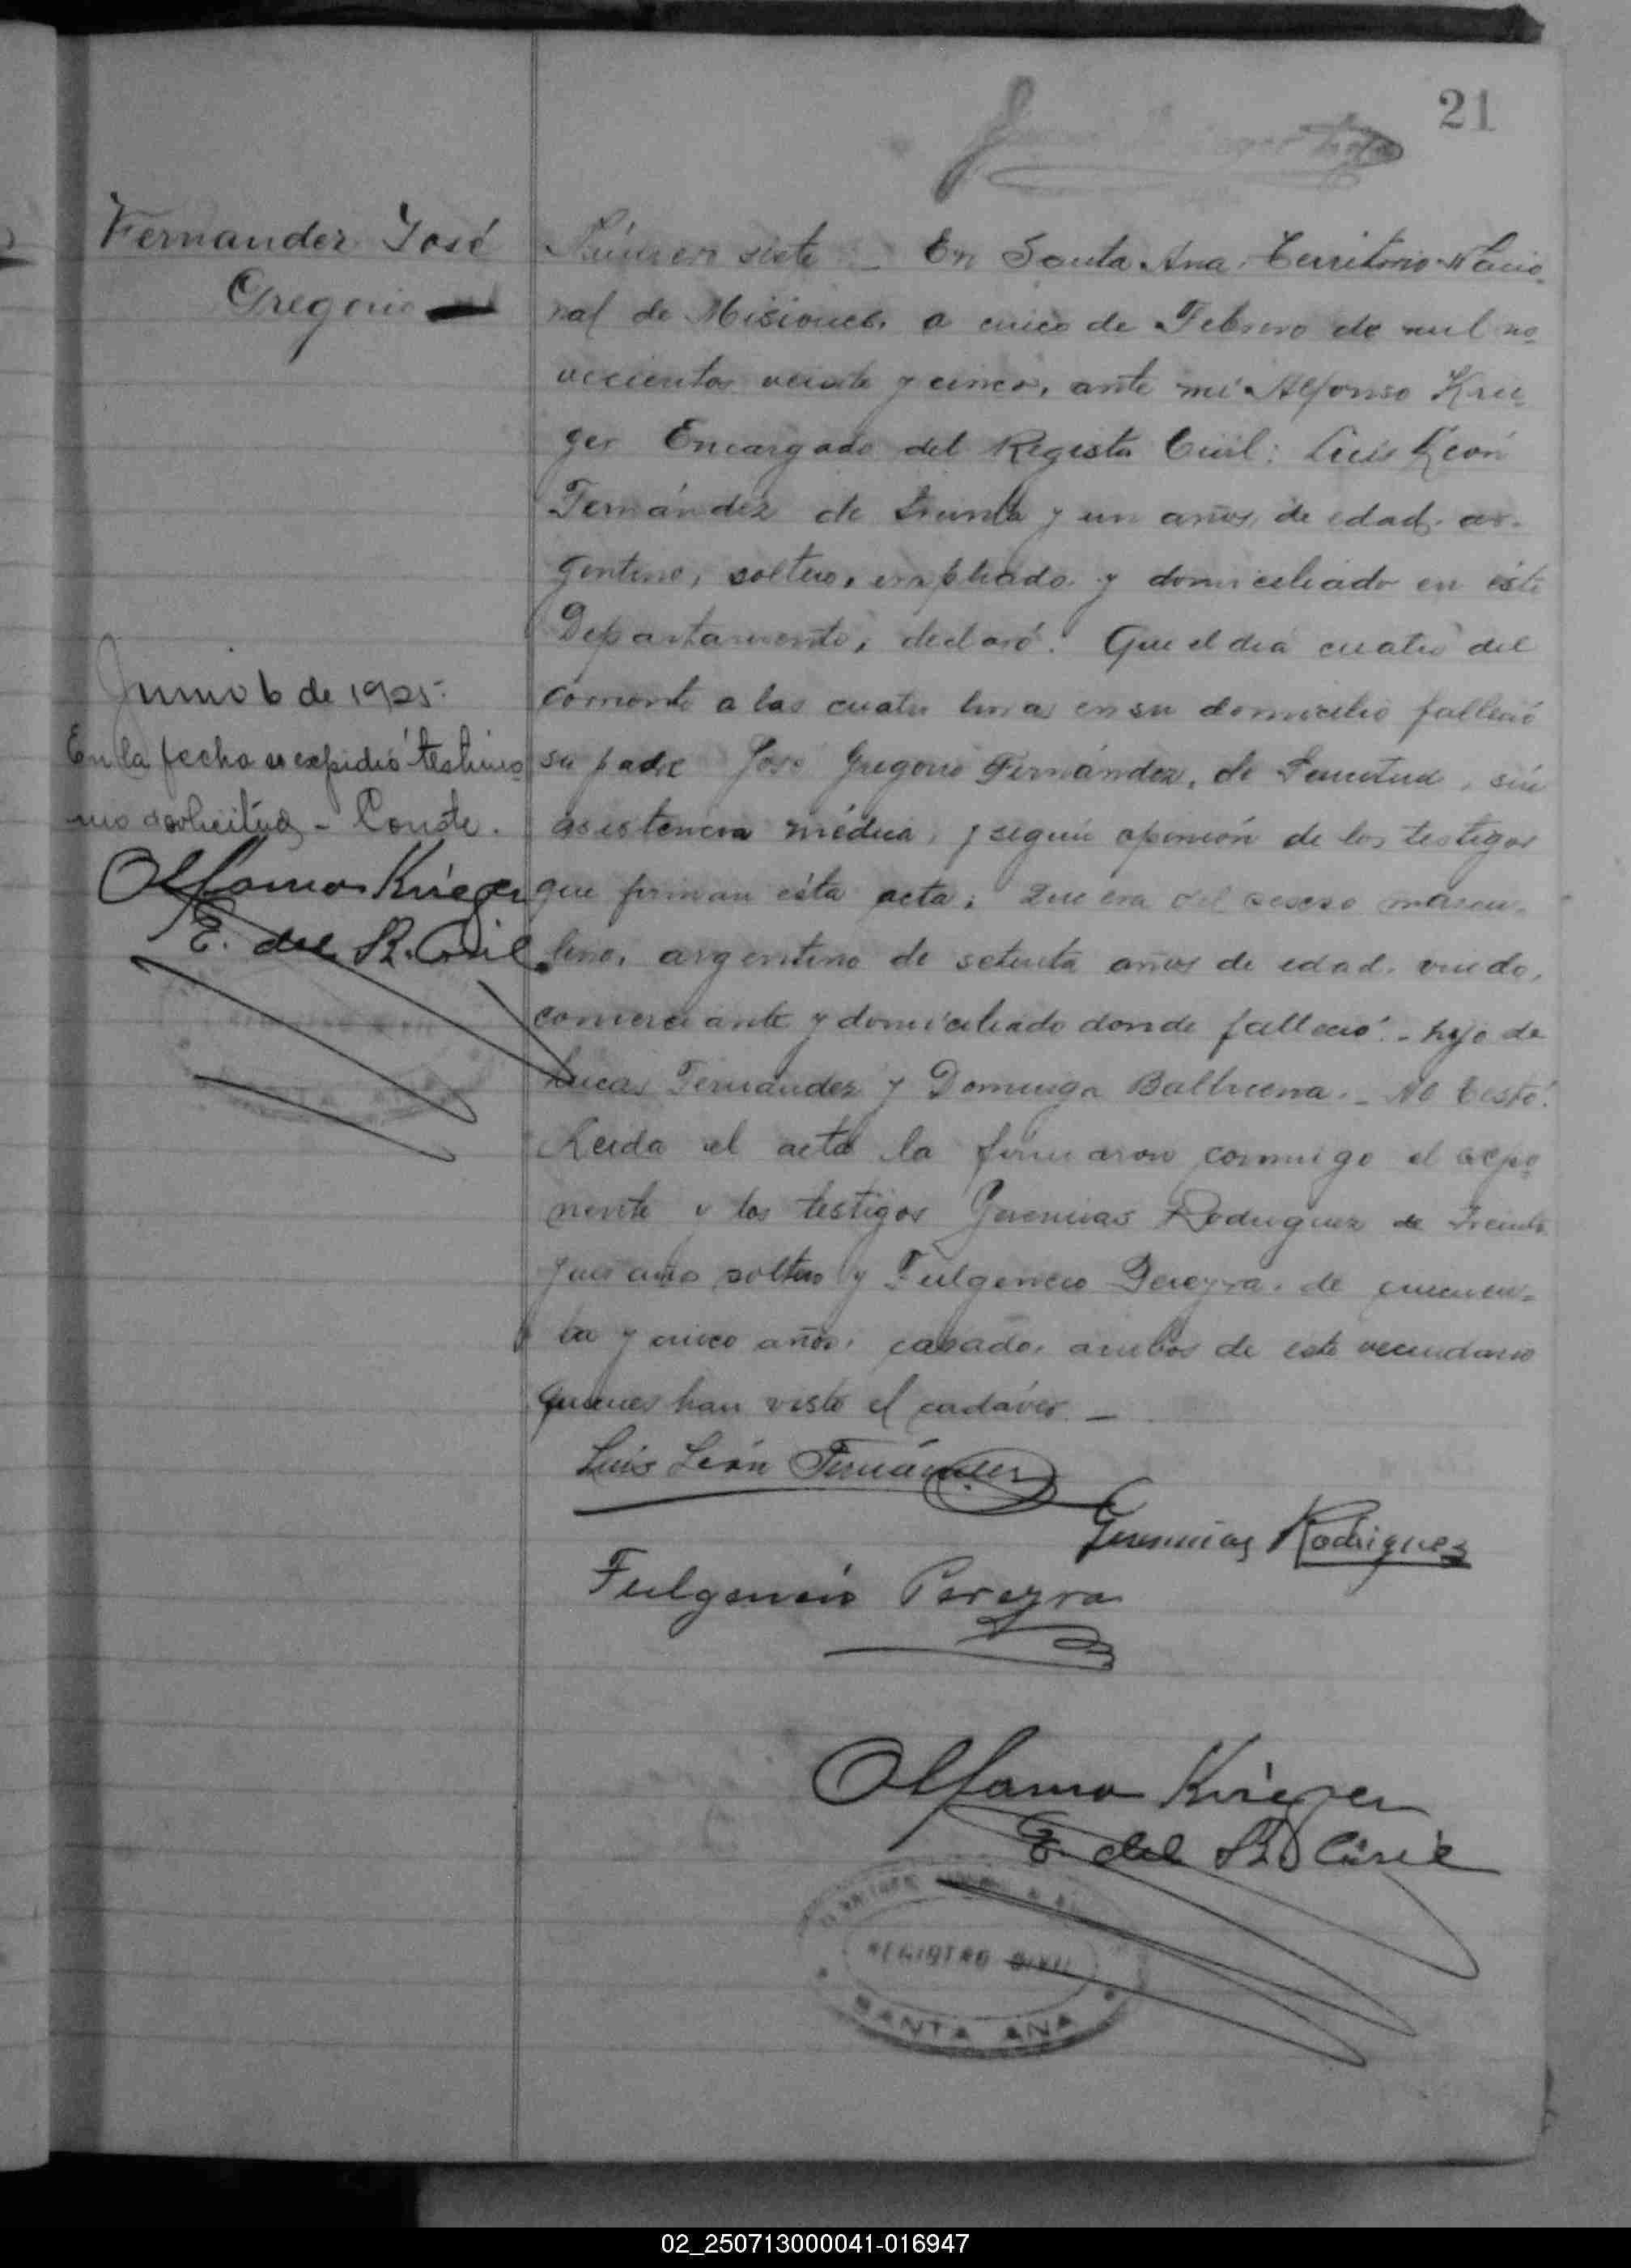 21
Fernandez José
Gregorio
Número siete _ En Santa Ana, Territorio Nacio-
nal de Misiones, a cinco de Febrero de mil no-
vecientos veinte y cinco, ante mi Alfonso Krie-
ger Encargado del Registro Civil: Luis León
Fernández de treinta y un años de edad, ar-
gentino, soltero, empleado y domiciliado en éste
Departamento, declaró: Que el día cuatro del
corriente a las cuatro horas en su domicilio falleció
su padre José Gregorio Fernández, de Senectud, sin
asistencia médica, y según opinión de los testigos
que firman ésta acta; Que era del sexo mascu-
lino, argentino de setenta años de edad, viudo,
comerciante y domiciliado donde falleció. - hijo de
Lucas Fernandez y Dominga Balbuena. - No testó.
Leida el acta la firmaron conmigo el expo-
nente y los testigos Geremias Rodriguez de treinta
años soltero y Fulgencio Pereyra, de cincuen-
ta y cinco años, casado, ambos de este vecindario
quienes han visto el cadáver _
Junio 6 de 1925.
En la fecha se expidió testimo-
nio a solicitud - Conste.
Alfonso Krieger
E. del R. Civil
Luis León Fernández
Geremias Rodriguez
Fulgencio Pereyra
Alfonso Krieger
E. del R. Civil
REGISTRO CIVIL
SANTA ANA
02_250713000041-016947